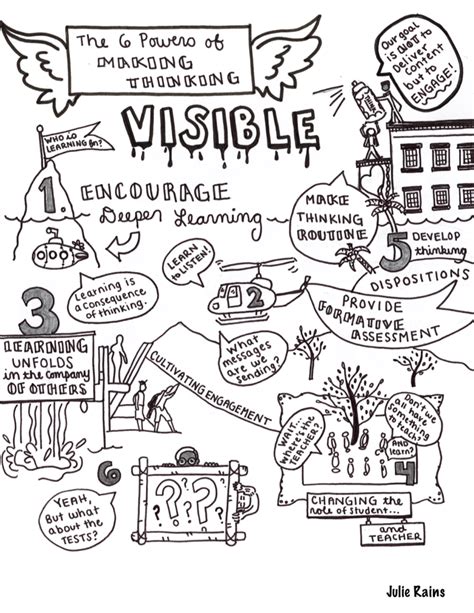 The 6 Powers of
MAKING
THINKING
VISIBLE
Our goal
is NOT to
Deliver
Content
but to
ENGAGE!
WHO is
LEARNING for?
1.
ENCOURAGE
Deeper Learning
LEARN
to LISTEN!
MAKE
THINKING
ROUTINE
5
DEVELOP
thinking
DISPOSITIONS
Learning is
a consequence
of thinking.
2
PROVIDE
FORMATIVE
ASSESSMENT
3
LEARNING
UNFOLDS
in the COMPANY
OF OTHERS
What
messages
are we
sending?
CULTIVATING ENGAGEMENT
WAIT,
Where's the
TEACHER?
Don't we
all have
something
to teach?
AND
learn?
4
6
YEAH,
But what
about the
TESTS?
? ? ?
?
CHANGING the
role of STUDENT...
and
TEACHER
Julie Rains